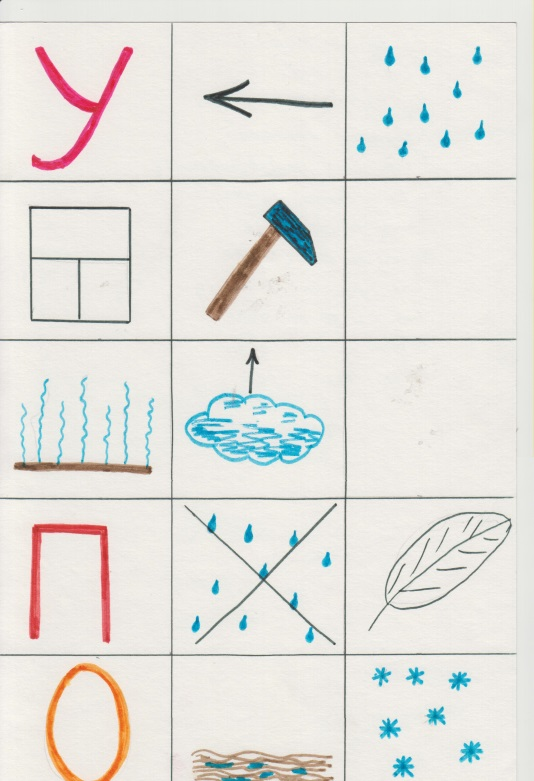 У
П
О